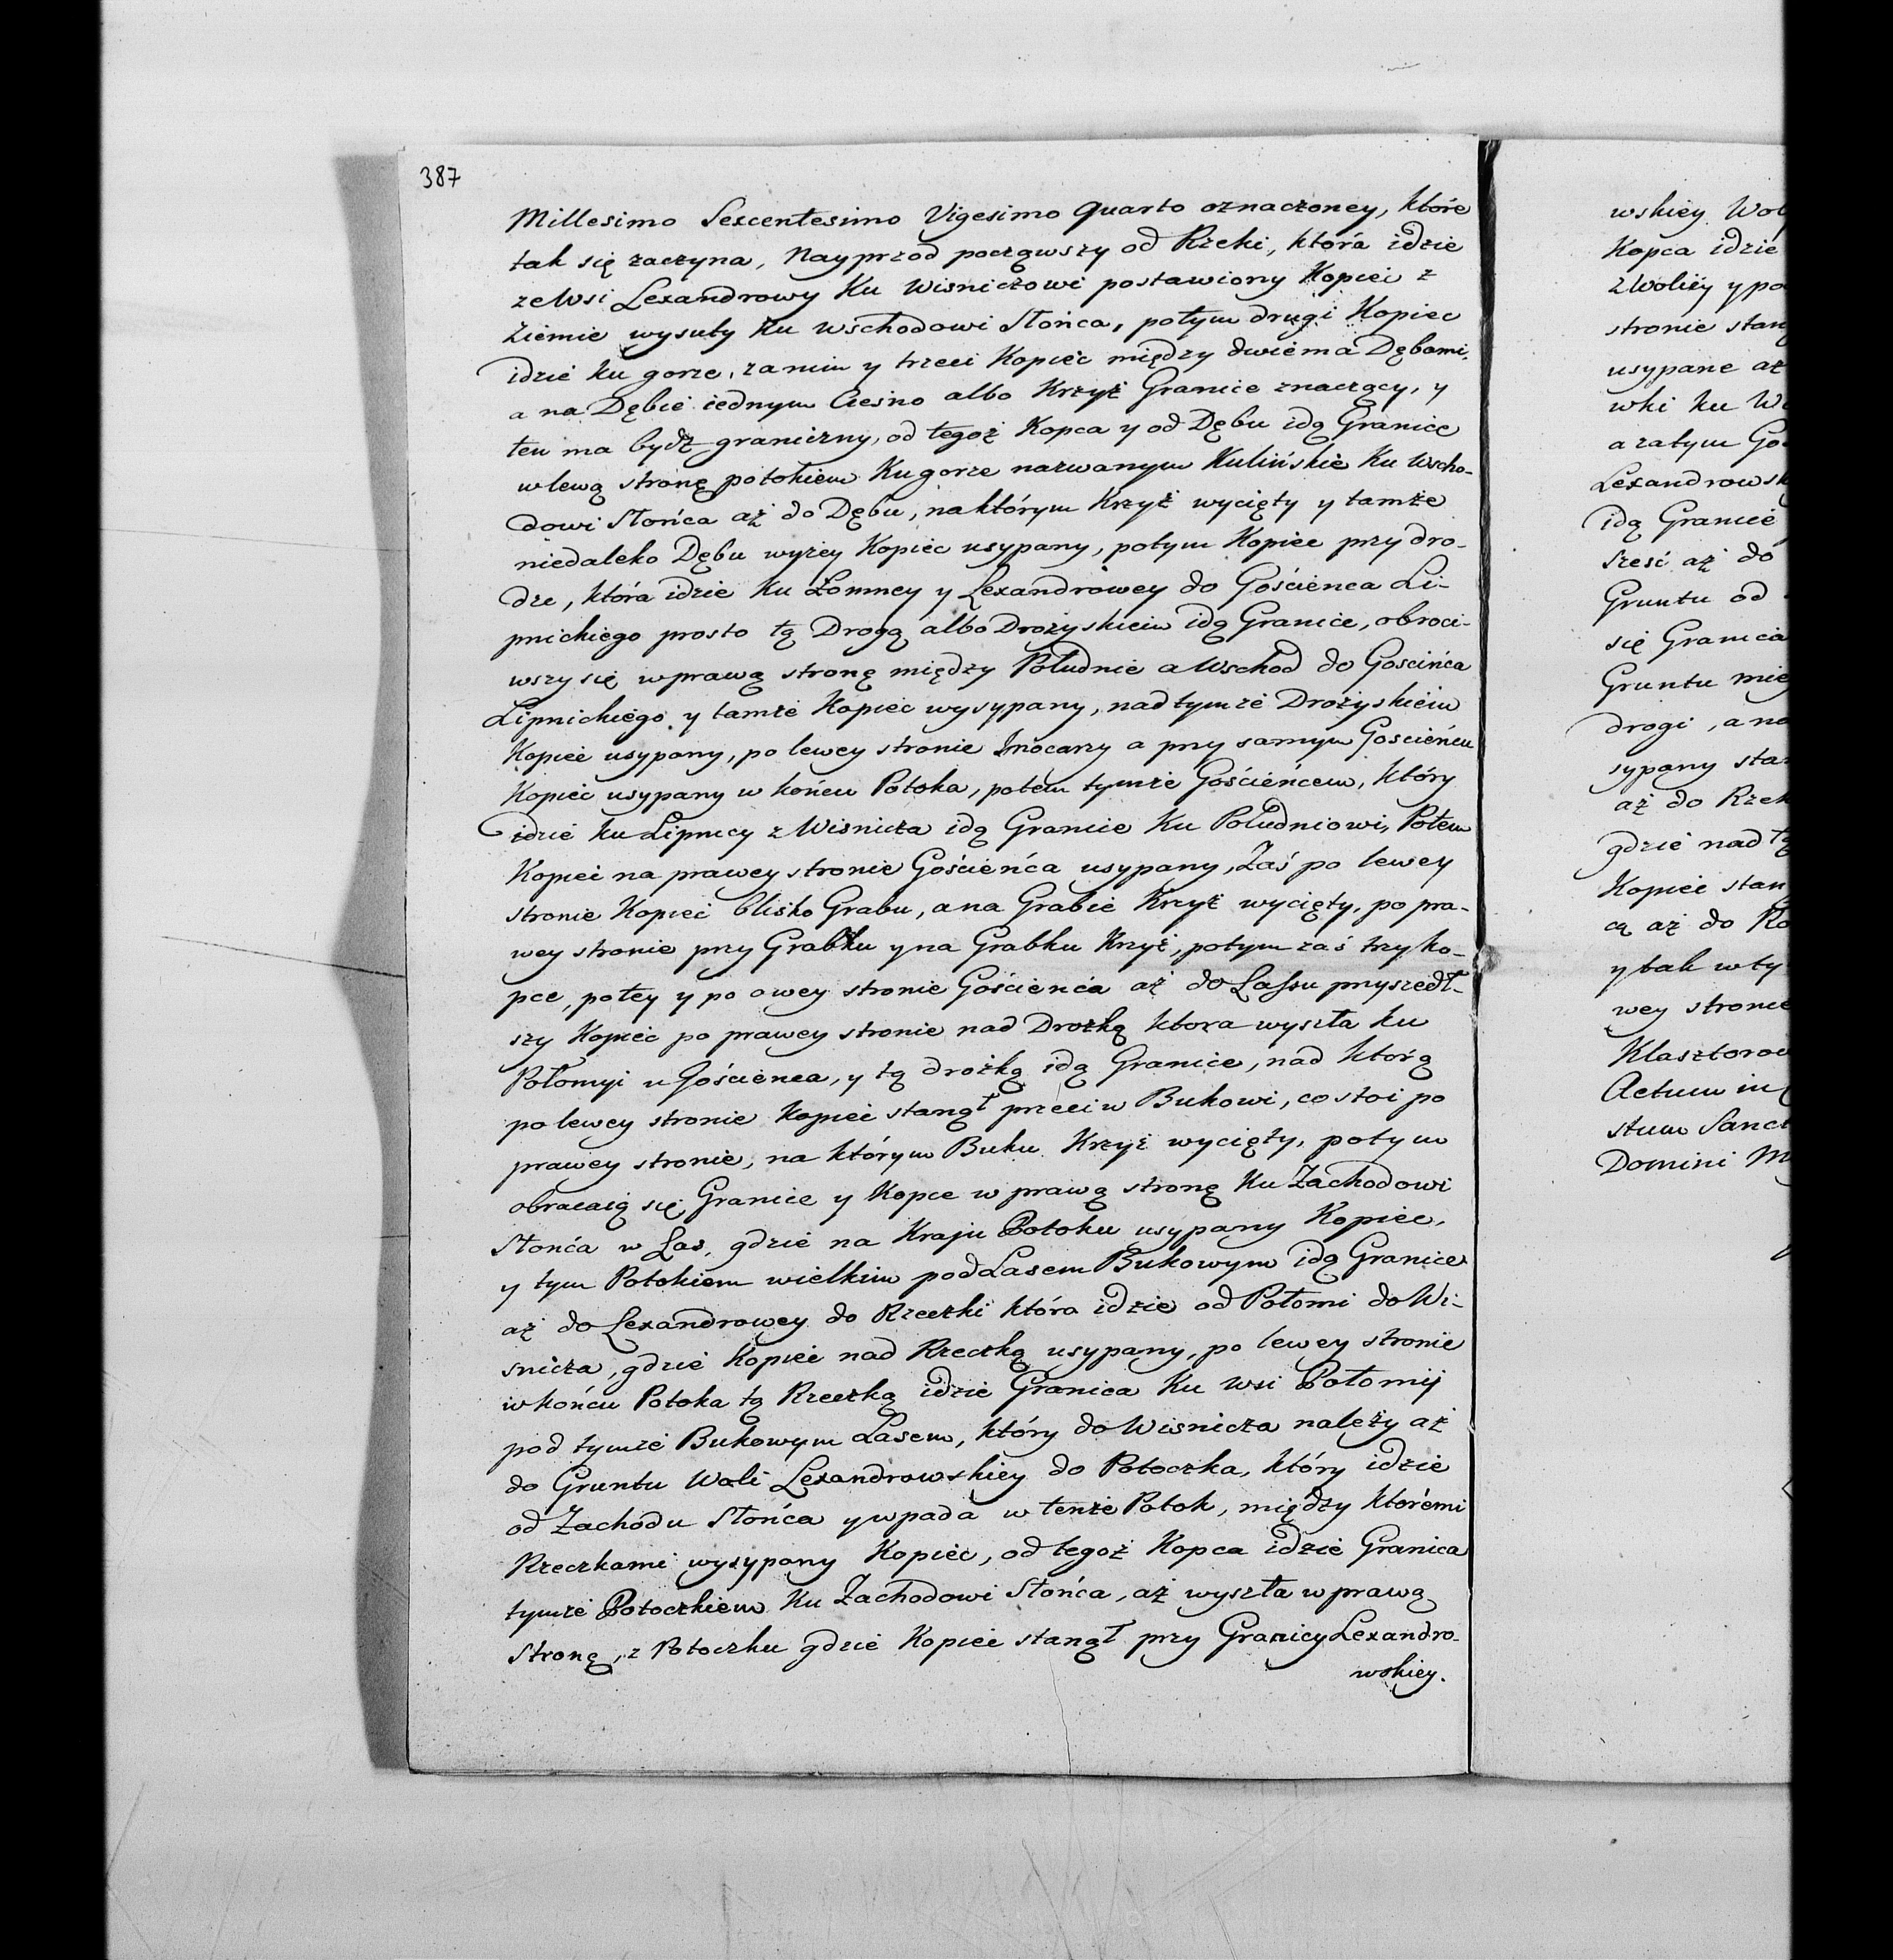 387
Millesimo Sexcentesimo Vigesimo Quarto oznaczoney, które
tak się zaczyna, Nayprzod począwszy od Rzeki, która idzie
ze Wsi Lexandrowy Ku Wisniczowi postawiony Kopiec z
Ziemie wysuty Ku Wschodowi Słońca, potym drugi Kopiec
idzie ku gorze, za nim y trzeci Kopiec między dwiema Dębami,
a na Dębie iednym Ciesno albo Krzyż Granice znaczący, y
ten ma bydź graniczny, od tegoż Kopca y od Dębu idą Granice
w lewą stronę potokiem Ku gorze nazwanym Kulińskie Ku Wscho-
dowi Słońca aż do Dębu, na którym Krzyż wycięty y tamże
niedaleko Dębu wyżey Kopiec usypany, potym Kopiec przy dro-
dze, która idzie Ku Łomney y Lexandrowey do Gościenca Li-
pnickiego prosto tą Drogą albo Drożyskiem idą Granice, obroci-
wszy się w prawą stronę między Południe a Wschod do Goscińca
Lipnickiego y tamże Kopiec wysypany, nad tymże Drożyskiem
Kopiec usypany, po lewey stronie a przy samym Gościeńcu
Kopiec usypany w końcu Potoka, potem tymże Gościeńcem, który
idzie ku Lipnicy z Wisnicza idą Granice Ku Południowi, Potem
Kopiec na prawey stronie Gościeńca usypany, Zaś po lewey
stronie Kopiec blisko Grabu, a na Grabie Krzyż wycięty, po pra-
wey stronie przy Grabku y na Grabku Krzyż, potym zaś trzy ko-
pce, po tey y po owey stronie Gościeńca aż do Lassu przyszedł-
szy Kopiec po prawey stronie nad Drożką ktora wyszła ku
Połomyi u Gościenca, y tą drożką idą Granice, nad którą
po lewey stronie Kopiec stanął przeciw Bukowi, co stoi po
prawey stronie, na którym Buku Krzyż wycięty, potym
obracaią się Granice y Kopce w prawą stronę Ku Zachodowi
Słońca w Las, gdzie na Kraju Potoku usypany Kopiec,
y tym Potokiem wielkim pod Lasem Bukowym idą Granice
aż do Lexandrowey do Rzeczki która idzie od Połomi do Wi-
snicza, gdzie Kopiec nad Rzeczką usypany, po lewey stronie
w końcu Potoka tą Rzeczką idzie Granica Ku wsi Połomij
pod tymże Bukowym Lasem, który do Wisnicza należy aż
do Gruntu Woli Lexandrowskiey do Potoczka, który idzie
od Zachodu Słońca y wpada w tenże Potok, między któremi
Rzeczkami wysypany Kopiec, od tegoż Kopca idzie Granica
tymże Potoczkiem Ku Zachodowi Słońca, aż wyszła w prawą
Stronę, z Potoczku gdzie Kopiec stanął przy Granicy Lexandro-
wskiey.
wskiey
Kopca idzie
z Woliiy y
stronie
usypane aż
wki ku
a zatym
idą Granice
Sześć aż do
Gruntu od
się Granica
Gruntu
drogi, a
sypany
aż do
gdzie nad
Kopiec
cą aż do
y tak w
wey stronie
Actum in
stum
Domini